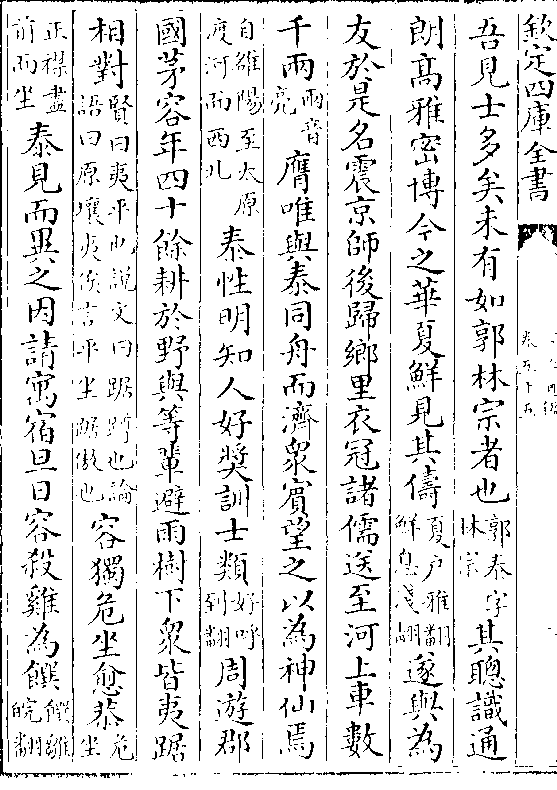 欽定四庫全書
卷五十五
吾見士多矣未有如郭林宗者也郭泰字林宗其聰識通
朗高雅密博今之華夏鮮見其儔夏户雅翻鮮息淺翻遂與為
友於是名震京師後歸鄉里衣冠諸儒送至河上車數
千兩兩音亮膺唯與泰同舟而濟衆賓望之以為神仙焉
自雒陽至太原度河而西北泰性明知人好奬訓士類好呼到翻周遊郡
國茅容年四十餘耕於野與等輩避雨樹下衆皆夷踞
相對賢曰夷平也説文曰踞蹲也論語曰原壤夷俟言平坐踞傲也容獨危坐愈恭危坐
正襟盡前而坐泰見而異之因請寓宿旦日容殺雞為饌饌雛皖翻